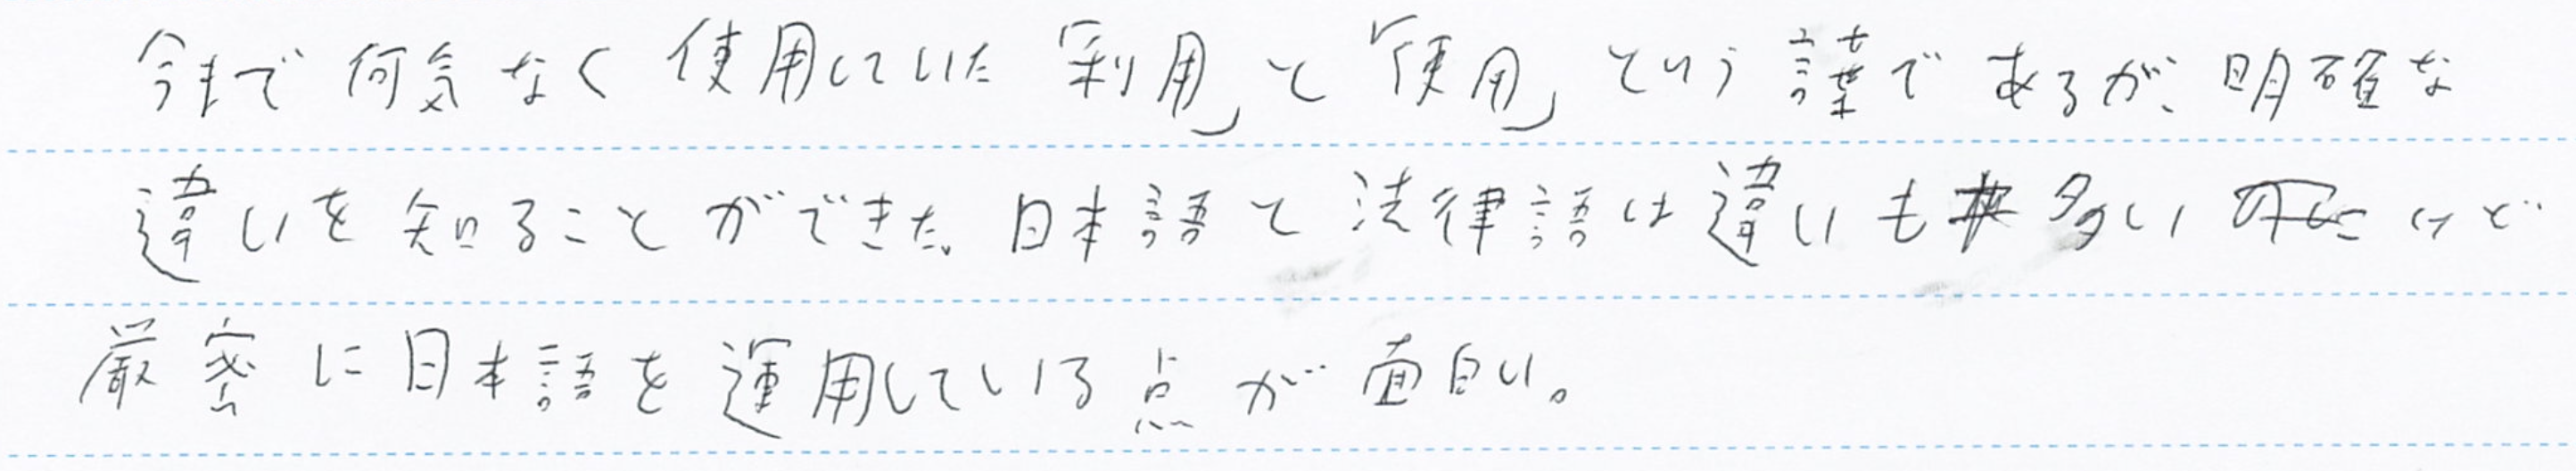 今まで何気なく使用していた「利用」と「使用」という謹であるが、明確な
違いを知ることができた。日本語と法律語は違いも多いけど
厳密に日本語を運用している点が面白い。